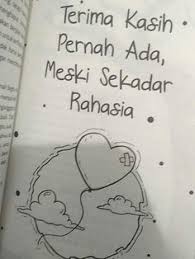 Terima Kasih
Pernah Ada,
Meski Sekadar
Rahasia